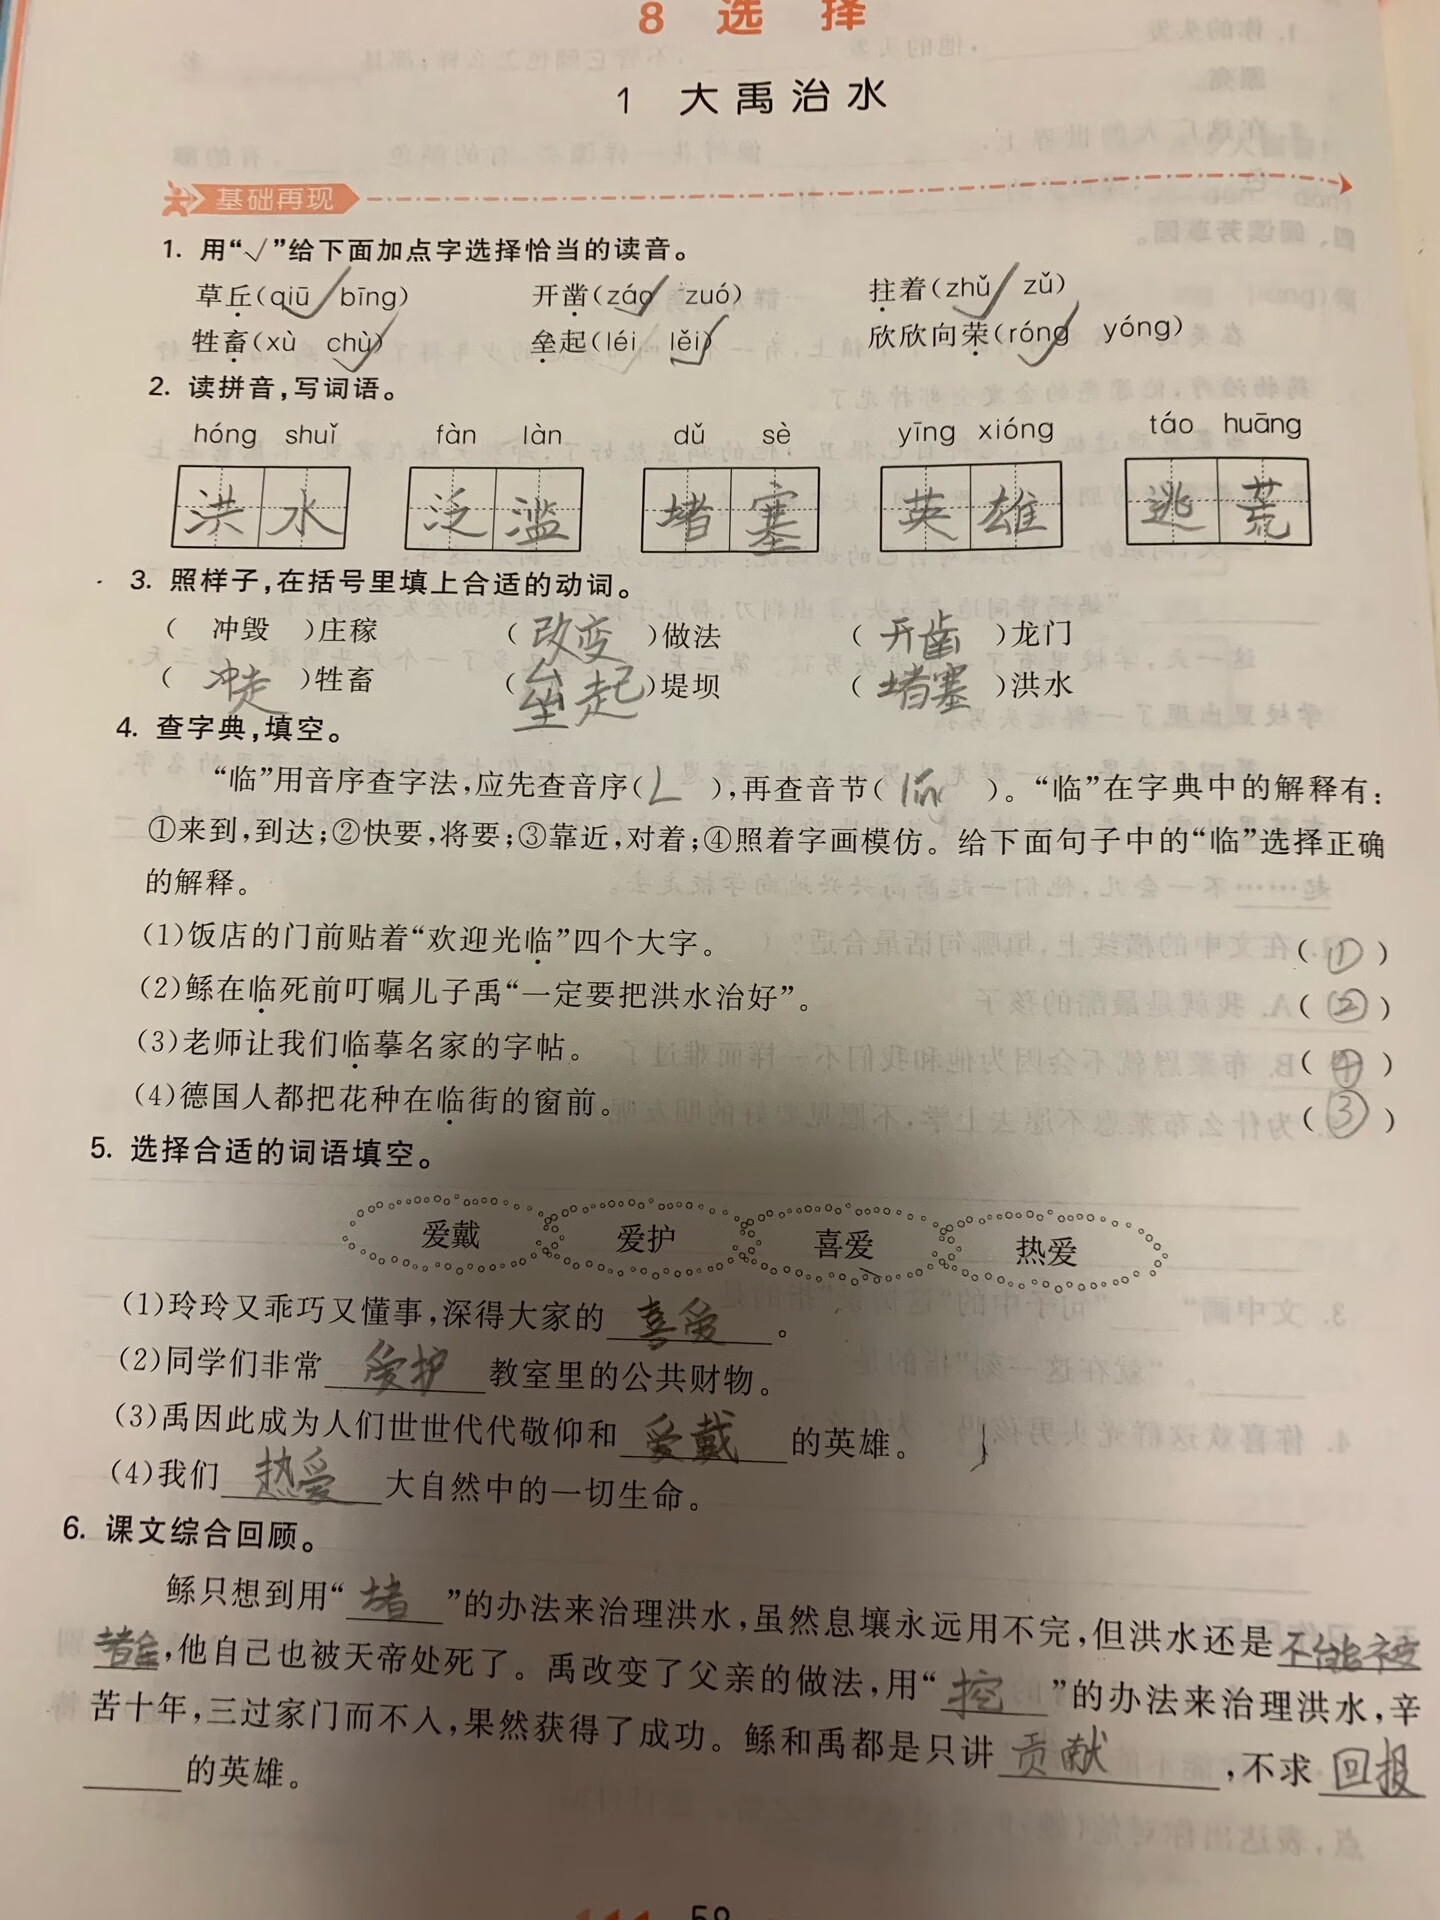 8 选择
1 大禹治水
基础再现
1. 用“√”给下面加点字选择恰当的读音。
草丘(qiū√ bīng) 开凿(záo√ zuó) 拄着(zhǔ√ zǔ)
牲畜(xù chù√) 垒起(léi lěi√) 欣欣向荣(róng√ yóng)
2. 读拼音,写词语。
hóng shuǐ fàn làn dǔ sè yīng xióng táo huāng
洪水 泛滥 堵塞 英雄 逃荒
3. 照样子,在括号里填上合适的动词。
( 冲毁 )庄稼 ( 改变 )做法 ( 开凿 )龙门
( 冲走 )牲畜 ( 垒起 )堤坝 ( 堵塞 )洪水
4. 查字典,填空。
“临”用音序查字法,应先查音序( L ),再查音节( lin )。“临”在字典中的解释有:
①来到,到达;②快要,将要;③靠近,对着;④照着字画模仿。给下面句子中的“临”选择正确
的解释。
(1)饭店的门前贴着“欢迎光临”四个大字。 ( ① )
(2)鲧在临死前叮嘱儿子禹“一定要把洪水治好”。 ( ② )
(3)老师让我们临摹名家的字帖。 ( ④ )
(4)德国人都把花种在临街的窗前。 ( ③ )
5. 选择合适的词语填空。
爱戴 爱护 喜爱 热爱
(1)玲玲又乖巧又懂事,深得大家的喜爱。
(2)同学们非常爱护教室里的公共财物。
(3)禹因此成为人们世世代代敬仰和爱戴的英雄。
(4)我们热爱大自然中的一切生命。
6. 课文综合回顾。
鲧只想到用“堵”的办法来治理洪水,虽然息壤永远用不完,但洪水还是不能被
,他自己也被天帝处死了。禹改变了父亲的做法,用“挖”的办法来治理洪水,辛
苦十年,三过家门而不入,果然获得了成功。鲧和禹都是只讲贡献,不求回报
的英雄。
59